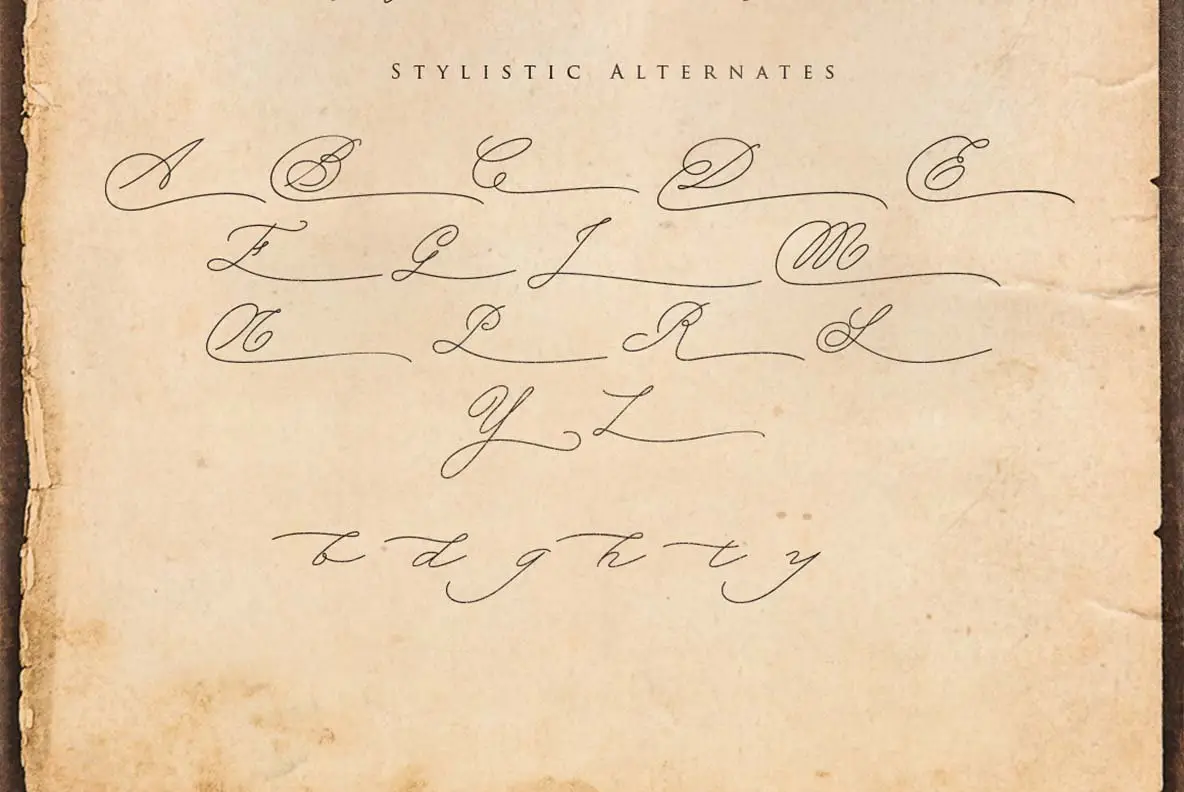 Stylistic Alternates
A B C D E
F G L M
N P R S
Y Z
b d g h t y